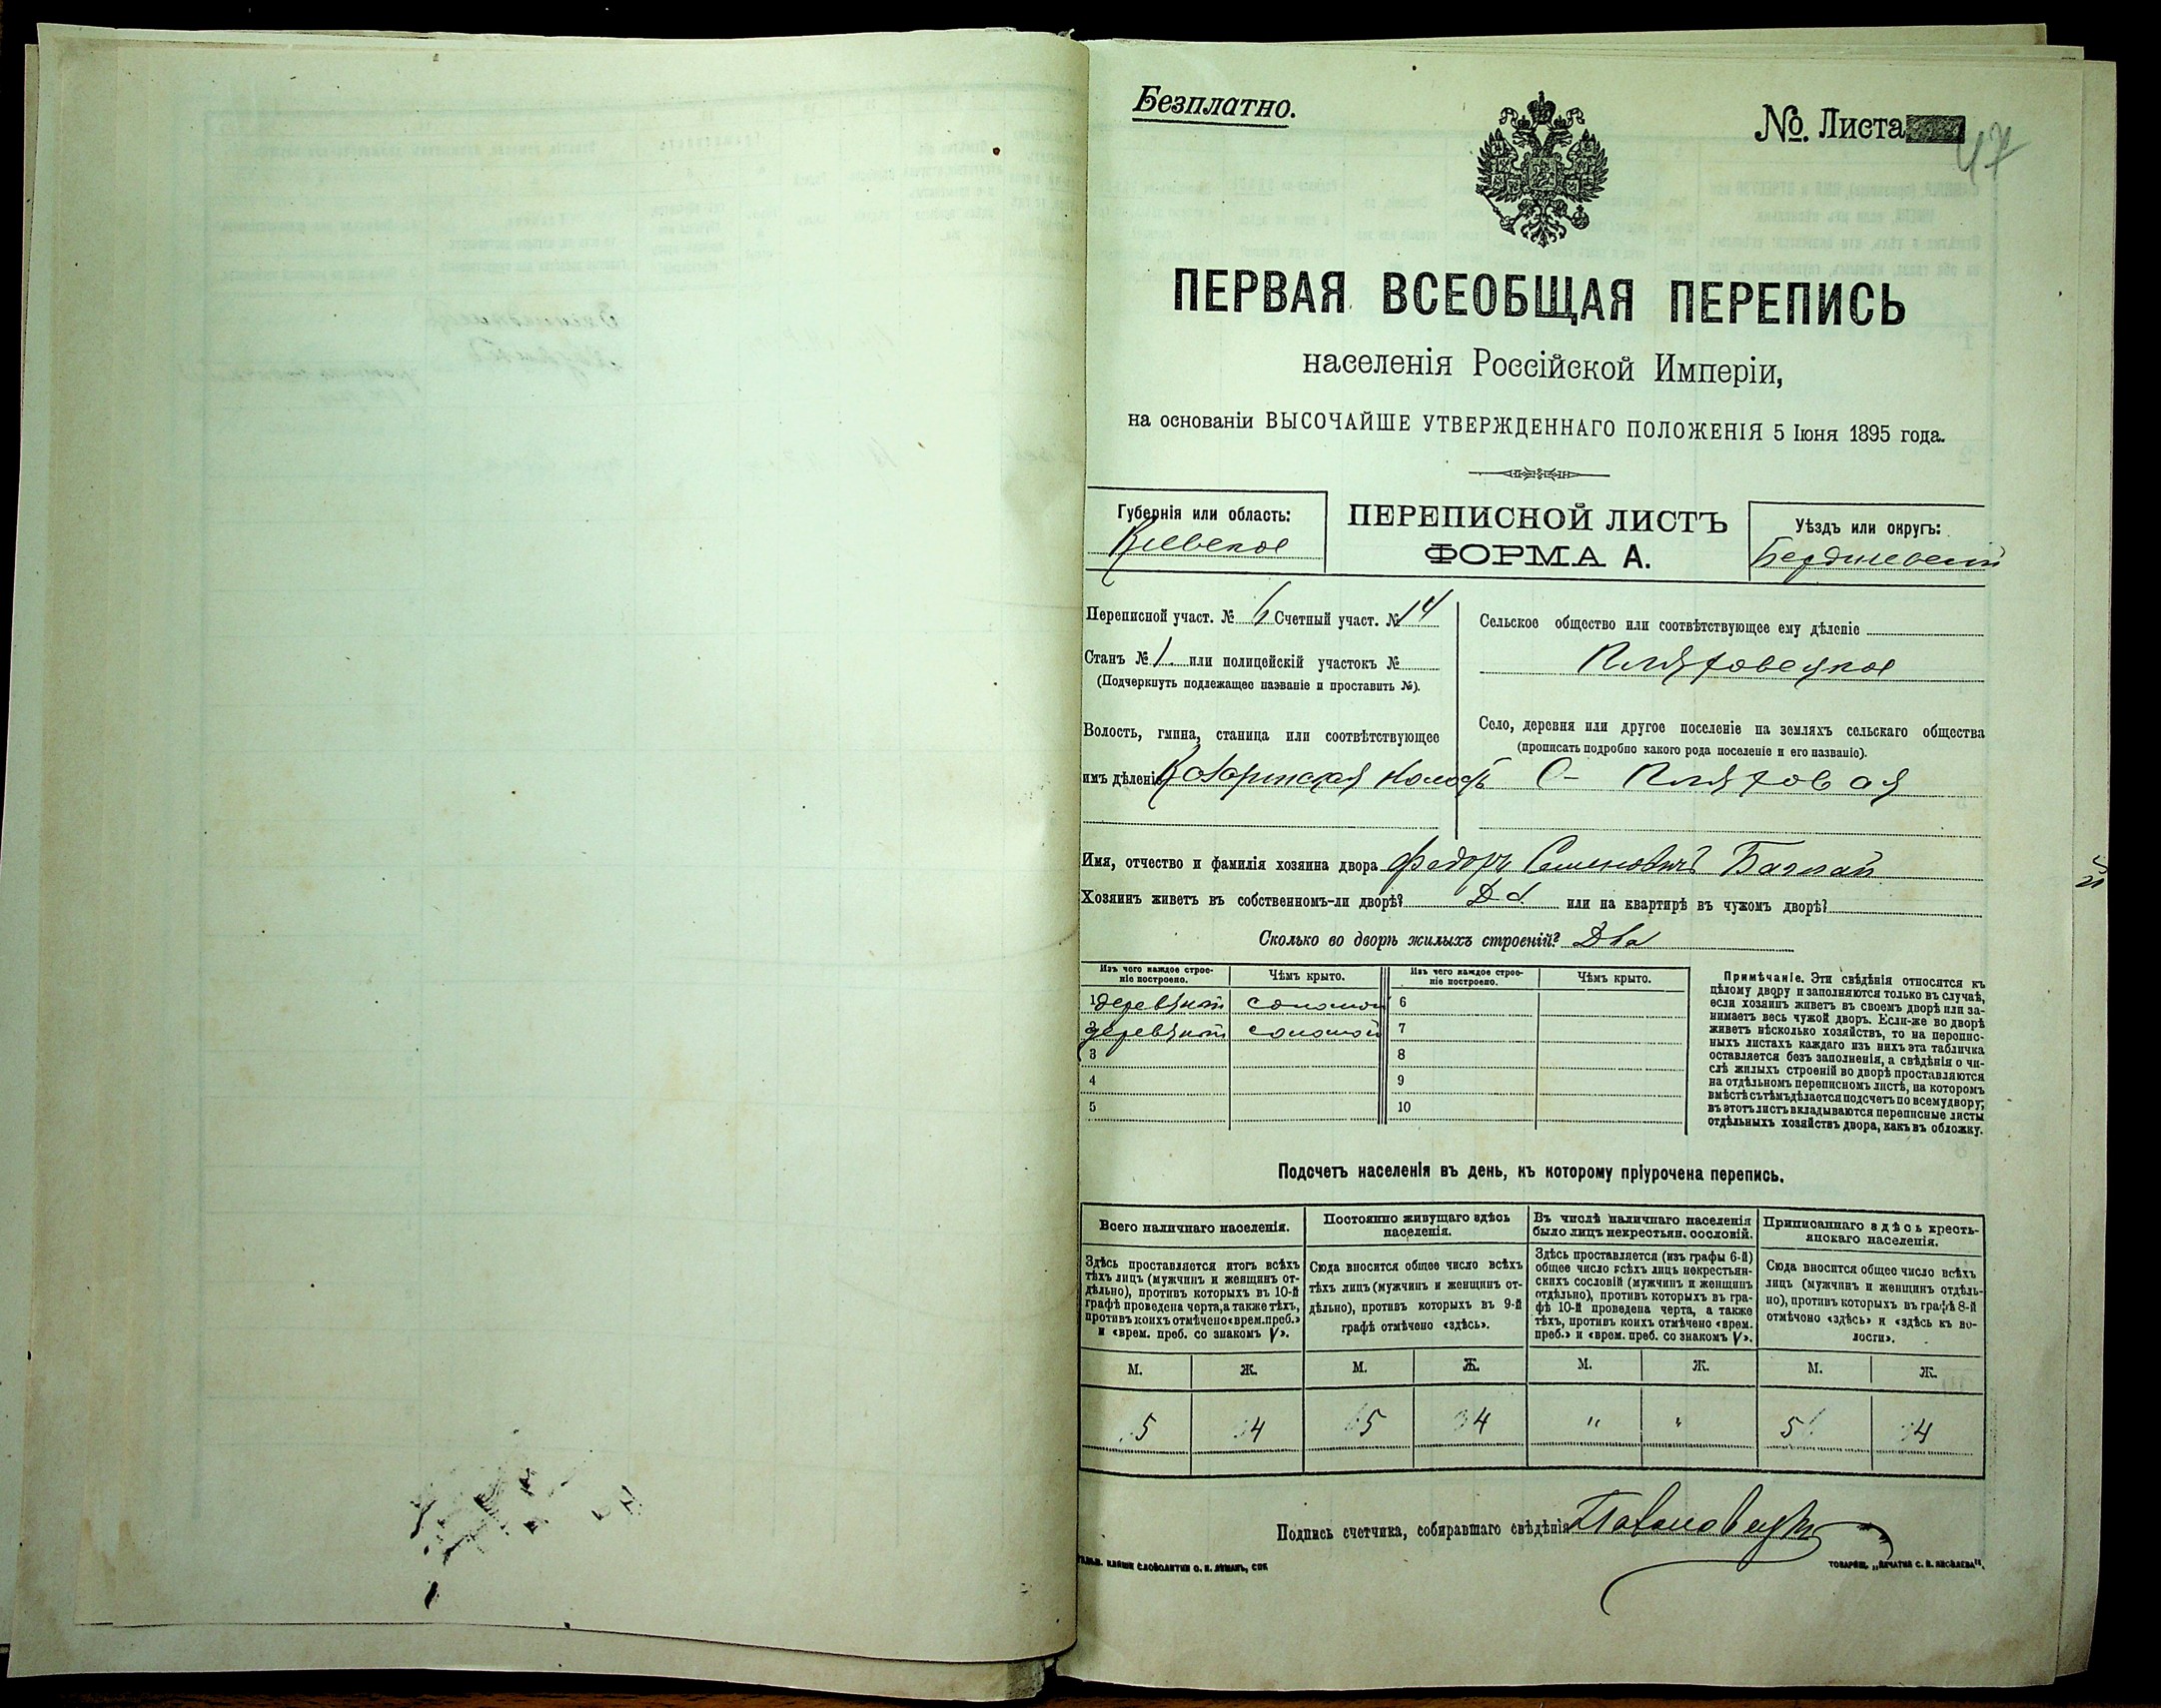 Безплатно.
№. Листа 47
ПЕРВАЯ ВСЕОБЩАЯ ПЕРЕПИСЬ
населенія Россійской Имперіи,
на основаніи ВЫСОЧАЙШЕ УТВЕРЖДЕННАГО ПОЛОЖЕНІЯ 5 Іюня 1895 года.
Губернія или область:
Киевское
ПЕРЕПИСНОЙ ЛИСТЪ
ФОРМА А.
Уѣздъ или округъ:
Бердичевский
Переписной участ. № 6 Счетный участ. № 14
Станъ № 1. или полицейскій участокъ №
(Подчеркнуть подлежащее названіе и проставить №).
Волость, гмина, станица или соотвѣтствующее
имъ дѣленіе
Сельское общество или соотвѣтствующее ему дѣленіе
Пляховецкое
Село, деревня или другое поселеніе на земляхъ сельскаго общества
(прописать подробно какого рода поселеніе и его названіе).
С- Пляховая
Имя, отчество и фамилія хозяина двора Федоръ Семеновичъ
Хозяинъ живетъ въ собственномъ-ли дворѣ? Да или на квартирѣ въ чужомъ дворѣ?
Сколько во дворѣ жилыхъ строеній? Два
Изъ чего каждое строе-
ніе построено.
Чѣмъ крыто.
Изъ чего каждое строе-
ніе построено.
Чѣмъ крыто.
1 деревяной соломой 6
2 деревяной соломой 7
3 8
4 9
5 10
Примѣчаніе. Эти свѣдѣнія относятся къ
цѣлому двору и заполняются только въ случаѣ,
если хозяинъ живетъ въ своемъ дворѣ или за-
нимаетъ весь чужой дворъ. Если-же во дворѣ
живетъ нѣсколько хозяйствъ, то на перепис-
ныхъ листахъ каждаго изъ нихъ эта табличка
оставляется безъ заполненія, а свѣдѣнія о чи-
слѣ жилыхъ строеній во дворѣ проставляются
на отдѣльномъ переписномъ листѣ, на которомъ
вмѣстѣ съ тѣмъ дѣлается подсчетъ по всему двору;
въ этотъ листъ вкладываются переписные листы
отдѣльныхъ хозяйствъ двора, какъ въ обложку.
Подсчетъ населенія въ день, къ которому пріурочена перепись.
Всего наличнаго населенія.
Здѣсь проставляется итогъ всѣхъ
тѣхъ лицъ (мужчинъ и женщинъ от-
дѣльно), противъ которыхъ въ 10-й
графѣ проведена черта, а также тѣхъ,
противъ коихъ отмѣчено «врем. преб.»
и «врем. преб. со знакомъ V».
Постоянно живущаго здѣсь
населенія.
Сюда вносится общее число всѣхъ
тѣхъ лицъ (мужчинъ и женщинъ от-
дѣльно), противъ которыхъ въ 9-й
графѣ отмѣчено «здѣсь».
Въ числѣ наличнаго населенія
было лицъ некрестьян. сословій.
Здѣсь проставляется (изъ графы 6-й)
общее число всѣхъ лицъ некрестьян-
скихъ сословій (мужчинъ и женщинъ
отдѣльно), противъ которыхъ въ гра-
фѣ 10-й проведена черта, а также
тѣхъ, противъ коихъ отмѣчено «врем.
преб.» и «врем. преб. со знакомъ V».
Приписаннаго здѣсь кресть-
янскаго населенія.
Сюда вносится общее число всѣхъ
лицъ (мужчинъ и женщинъ отдѣль-
но), противъ которыхъ въ графѣ 8-й
отмѣчено «здѣсь» и «здѣсь къ во-
лости».
М. Ж. М. Ж. М. Ж. М. Ж.
5 4 5 4 " " 5 4
Подпись счетчика, собиравшаго свѣдѣнія
ТОВАРИЩ. „ПЕЧАТНЯ С. П. ЯКОВЛЕВА“.